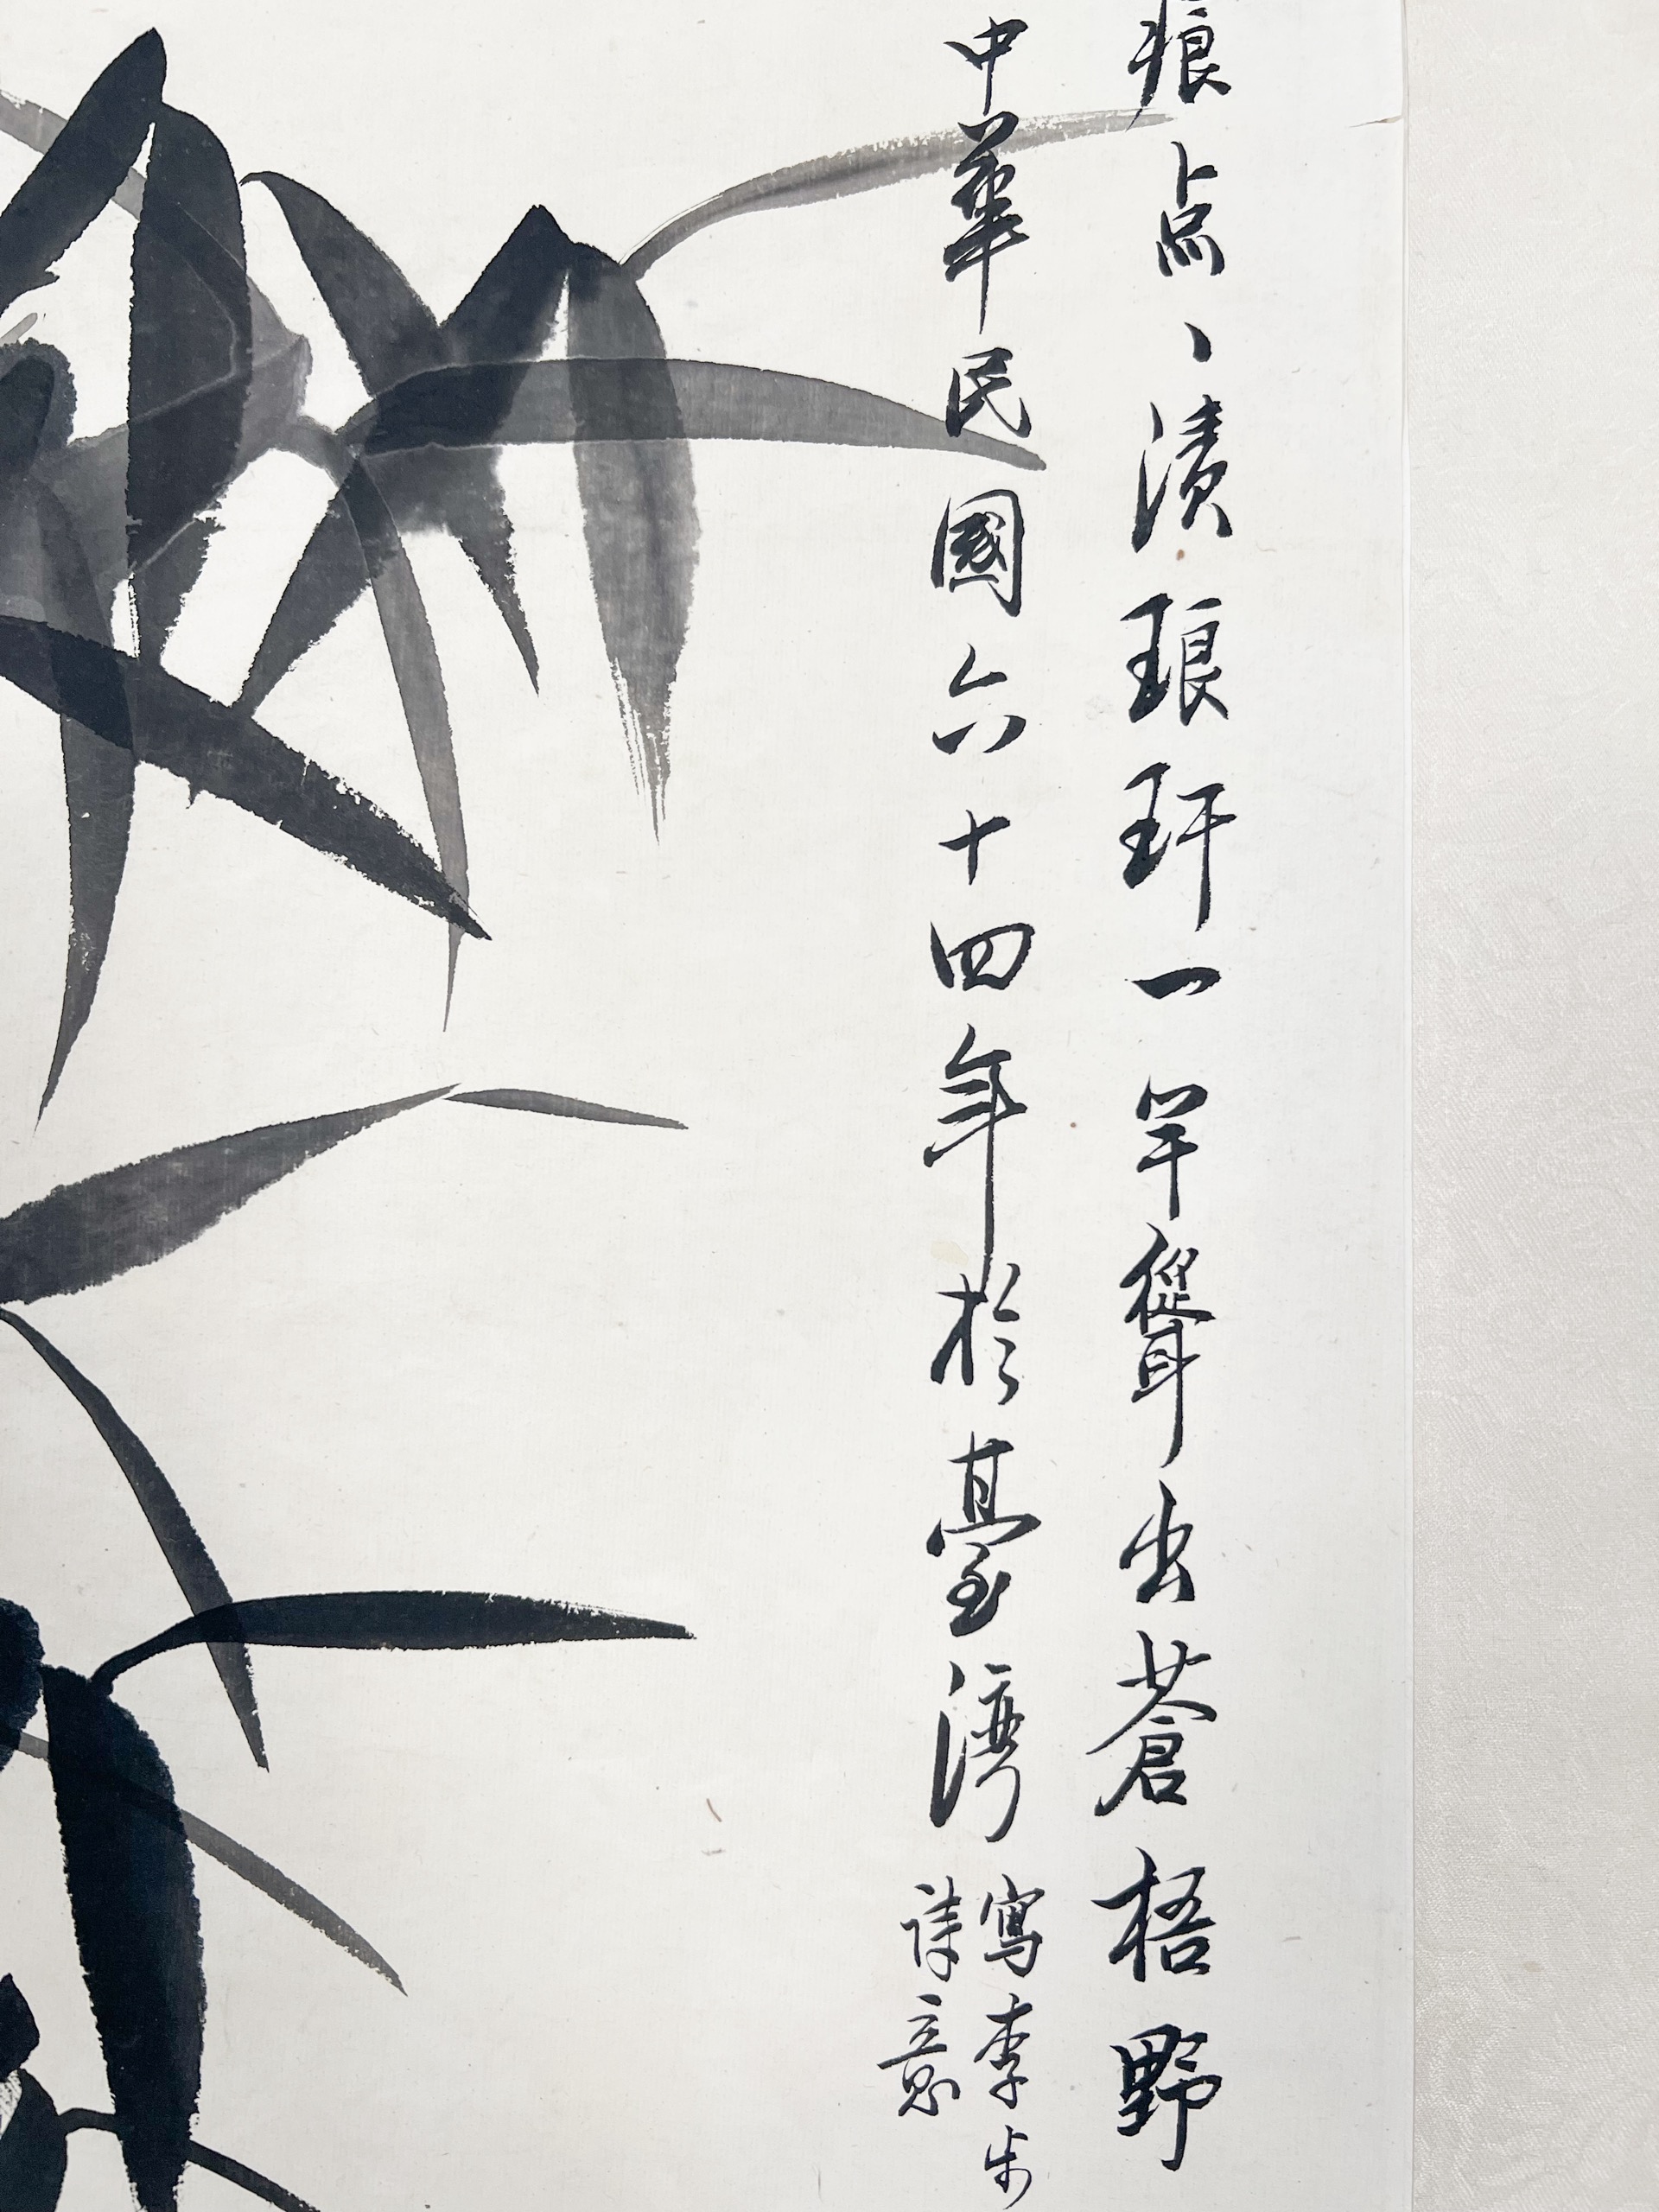 痕点丶漬琅玕一竿聳出蒼梧野
中華民國六十四年於臺灣
寫李步
詩意